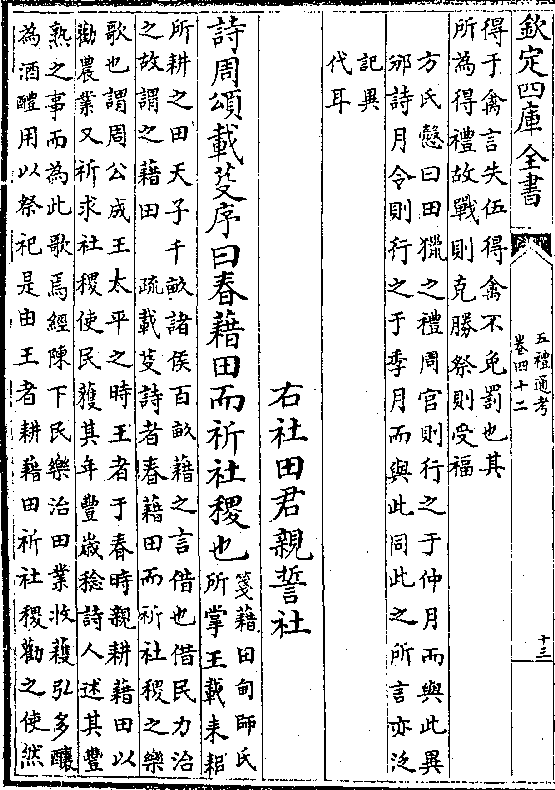 欽定四庫全書
五禮通考
卷四十二
十三
得于禽言失伍得禽不免罰也其
所為得禮故戰則克勝祭則受福
方氏慤曰田獵之禮周官則行之于仲月而與此異
郊詩月令則行之于季月而與此同此之所言亦泛
記異
代耳
右社田君親誓社
詩周頌載芟序曰春藉田而祈社稷也
箋藉田甸師氏
所掌王載耒耜
所耕之田天子千畝諸侯百畝藉之言借也借民力治
之故謂之藉田 疏載芟詩者春藉田而祈社稷之樂
歌也謂周公成王太平之時王者于春時親耕藉田以
勸農業又祈求社稷使民獲其年豐歲稔詩人述其豐
熟之事而為此歌焉經陳下民樂治田業收穫弘多釀
為酒醴用以祭祀是由王者耕藉田祈社稷勸之使然